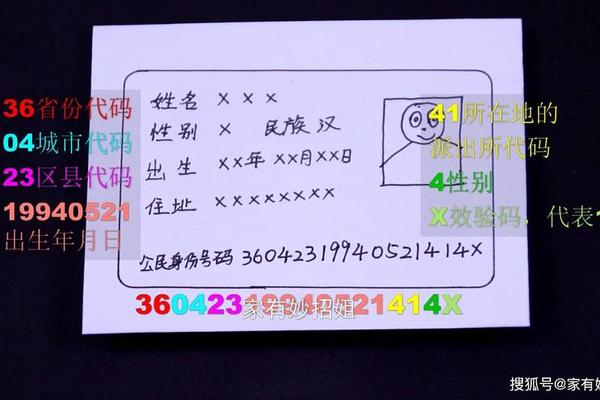 36省份代码
04城市代码
23区县代码
19940521
出生年月日
姓名 X X X
性别 X 民族 汉
出生 XX年 XX月XX日
住址 XXXXXXXX
公民身份号码 36042319940521414X
41所在地的
派出所代码
4性别
X效验码，代表1
36042319940521414X
家有妙招姐
搜狐号@家有妙